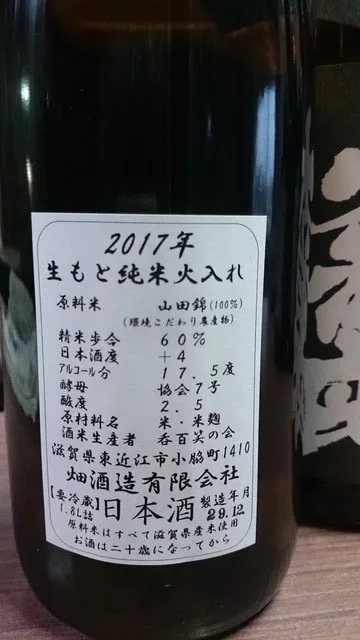 2017年
生もと純米火入れ
原料米 山田錦(100%)
(環境こだわり農産物)
精米歩合 60%
日本酒度 +4
アルコール分 17.5度
酵母 協会7号
酸度 2.5
原材料名 米・米麹
酒米生産者 呑百笑の会
滋賀県東近江市小脇町1410
畑酒造有限会社
【要冷蔵】 日本酒 製造年月
1.8L詰 29.12.
原料米はすべて滋賀県産米使用
お酒は二十歳になってから